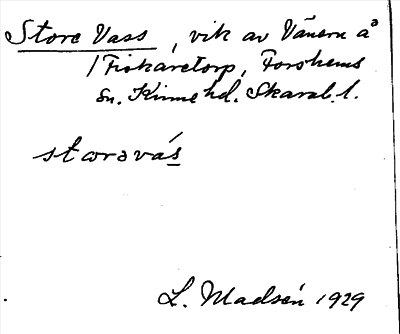 Store Vass, vik av Vänern å
/ Fiskaretorp, Forshems
sn. Kinne hd. Skarab. l.
storəvás
L. Madsén 1929